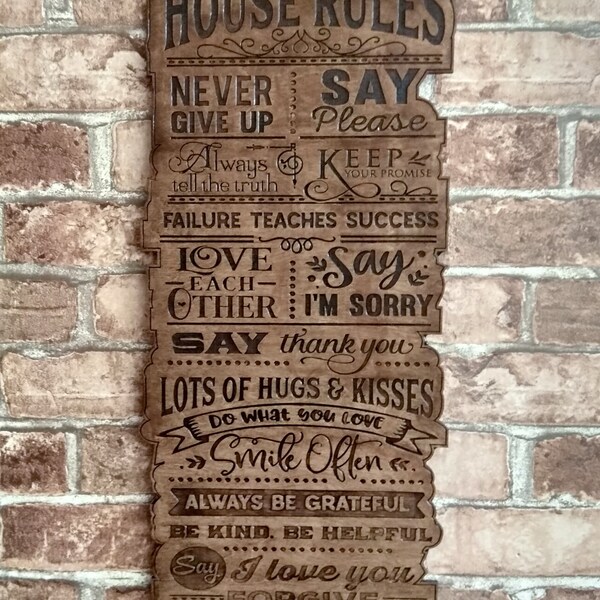 HOUSE RULES
NEVER
GIVE UP
SAY
Please
Always
tell the truth
KEEP
YOUR PROMISE
FAILURE TEACHES SUCCESS
LOVE
EACH
OTHER
Say
I'M SORRY
SAY thank you
LOTS OF HUGS & KISSES
DO WHAT YOU LOVE
Smile Often
ALWAYS BE GRATEFUL
BE KIND. BE HELPFUL
Say I love you
FORGIVE